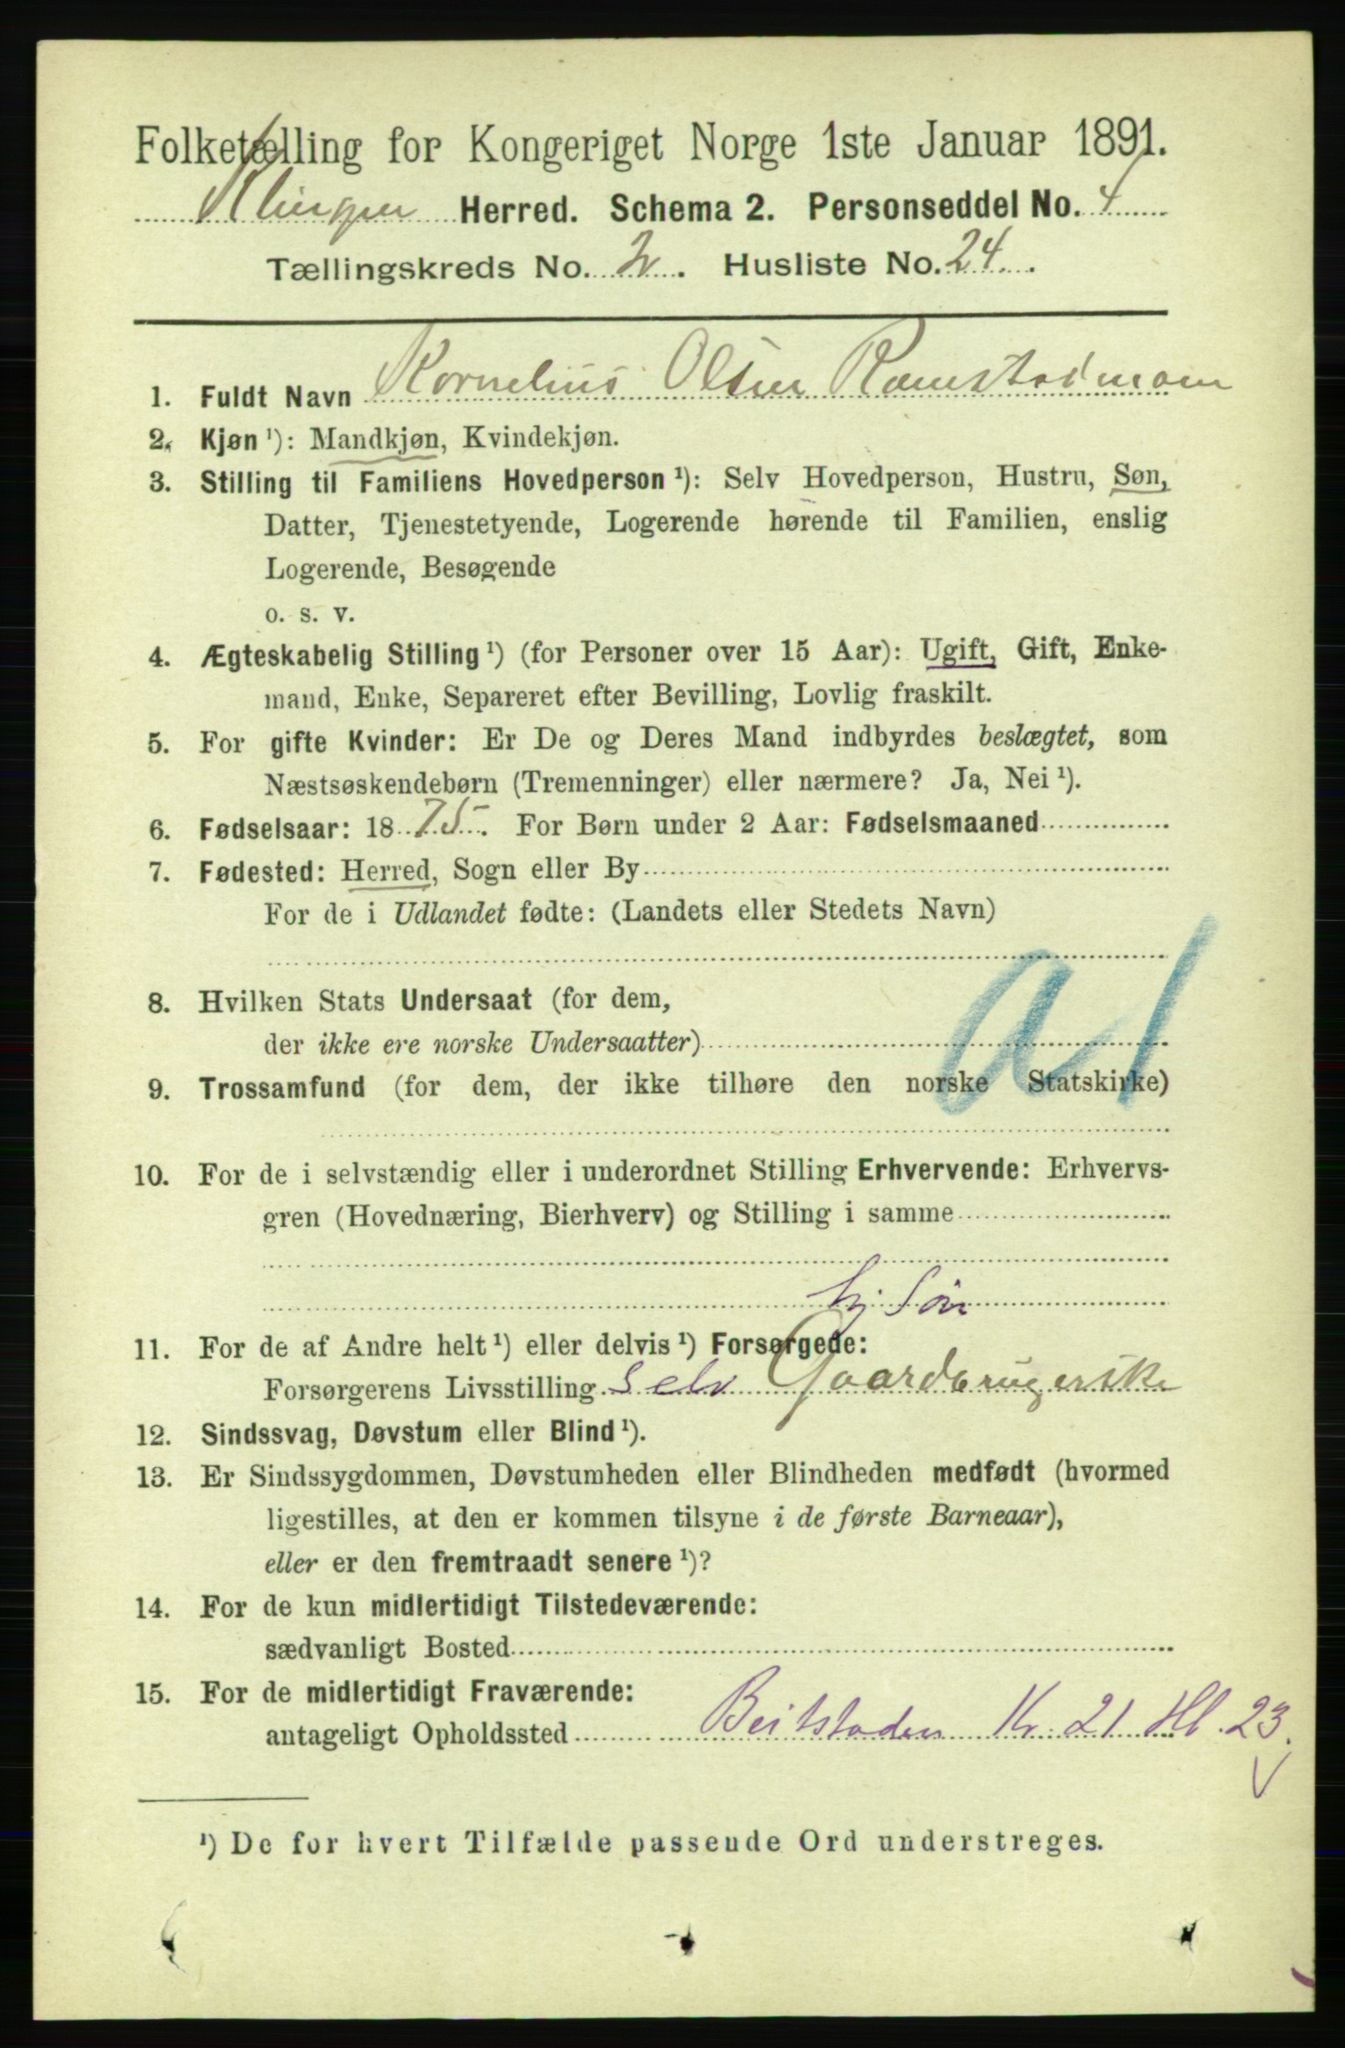 Folketælling for Kongeriget Norge 1ste Januar 1891.
Klingen Herred. Schema 2. Personseddel No. 4
Tællingskreds No. 2. Husliste No. 24.
1. Fuldt Navn Kornelius Olsen Ramstadmoen
2. Kjøn ¹): Mandkjøn, Kvindekjøn.
3. Stilling til Familiens Hovedperson ¹): Selv Hovedperson, Hustru, Søn,
Datter, Tjenestetyende, Logerende hørende til Familien, enslig
Logerende, Besøgende
o. s. v.
4. Ægteskabelig Stilling ¹) (for Personer over 15 Aar): Ugift, Gift, Enke-
mand, Enke, Separeret efter Bevilling, Lovlig fraskilt.
5. For gifte Kvinder: Er De og Deres Mand indbyrdes beslægtet, som
Næstsøskendebørn (Tremenninger) eller nærmere? Ja, Nei ¹).
6. Fødselsaar: 1875. For Børn under 2 Aar: Fødselsmaaned
7. Fødested: Herred, Sogn eller By
For de i Udlandet fødte: (Landets eller Stedets Navn)
8. Hvilken Stats Undersaat (for dem,
der ikke ere norske Undersaatter)
a1
9. Trossamfund (for dem, der ikke tilhøre den norske Statskirke)
10. For de i selvstændig eller i underordnet Stilling Erhvervende: Erhvervs-
gren (Hovednæring, Bierhverv) og Stilling i samme
hj. Søn
11. For de af Andre helt ¹) eller delvis ¹) Forsørgede:
Forsørgerens Livsstilling Selv Gaardbrugerske
12. Sindssvag, Døvstum eller Blind ¹).
13. Er Sindssygdommen, Døvstumheden eller Blindheden medfødt (hvormed
ligestilles, at den er kommen tilsyne i de første Barneaar),
eller er den fremtraadt senere ¹)?
14. For de kun midlertidigt Tilstedeværende:
sædvanligt Bosted
15. For de midlertidigt Fraværende:
antageligt Opholdssted Beitstaden Kr. 21 Hl. 23.
¹) De for hvert Tilfælde passende Ord understreges.